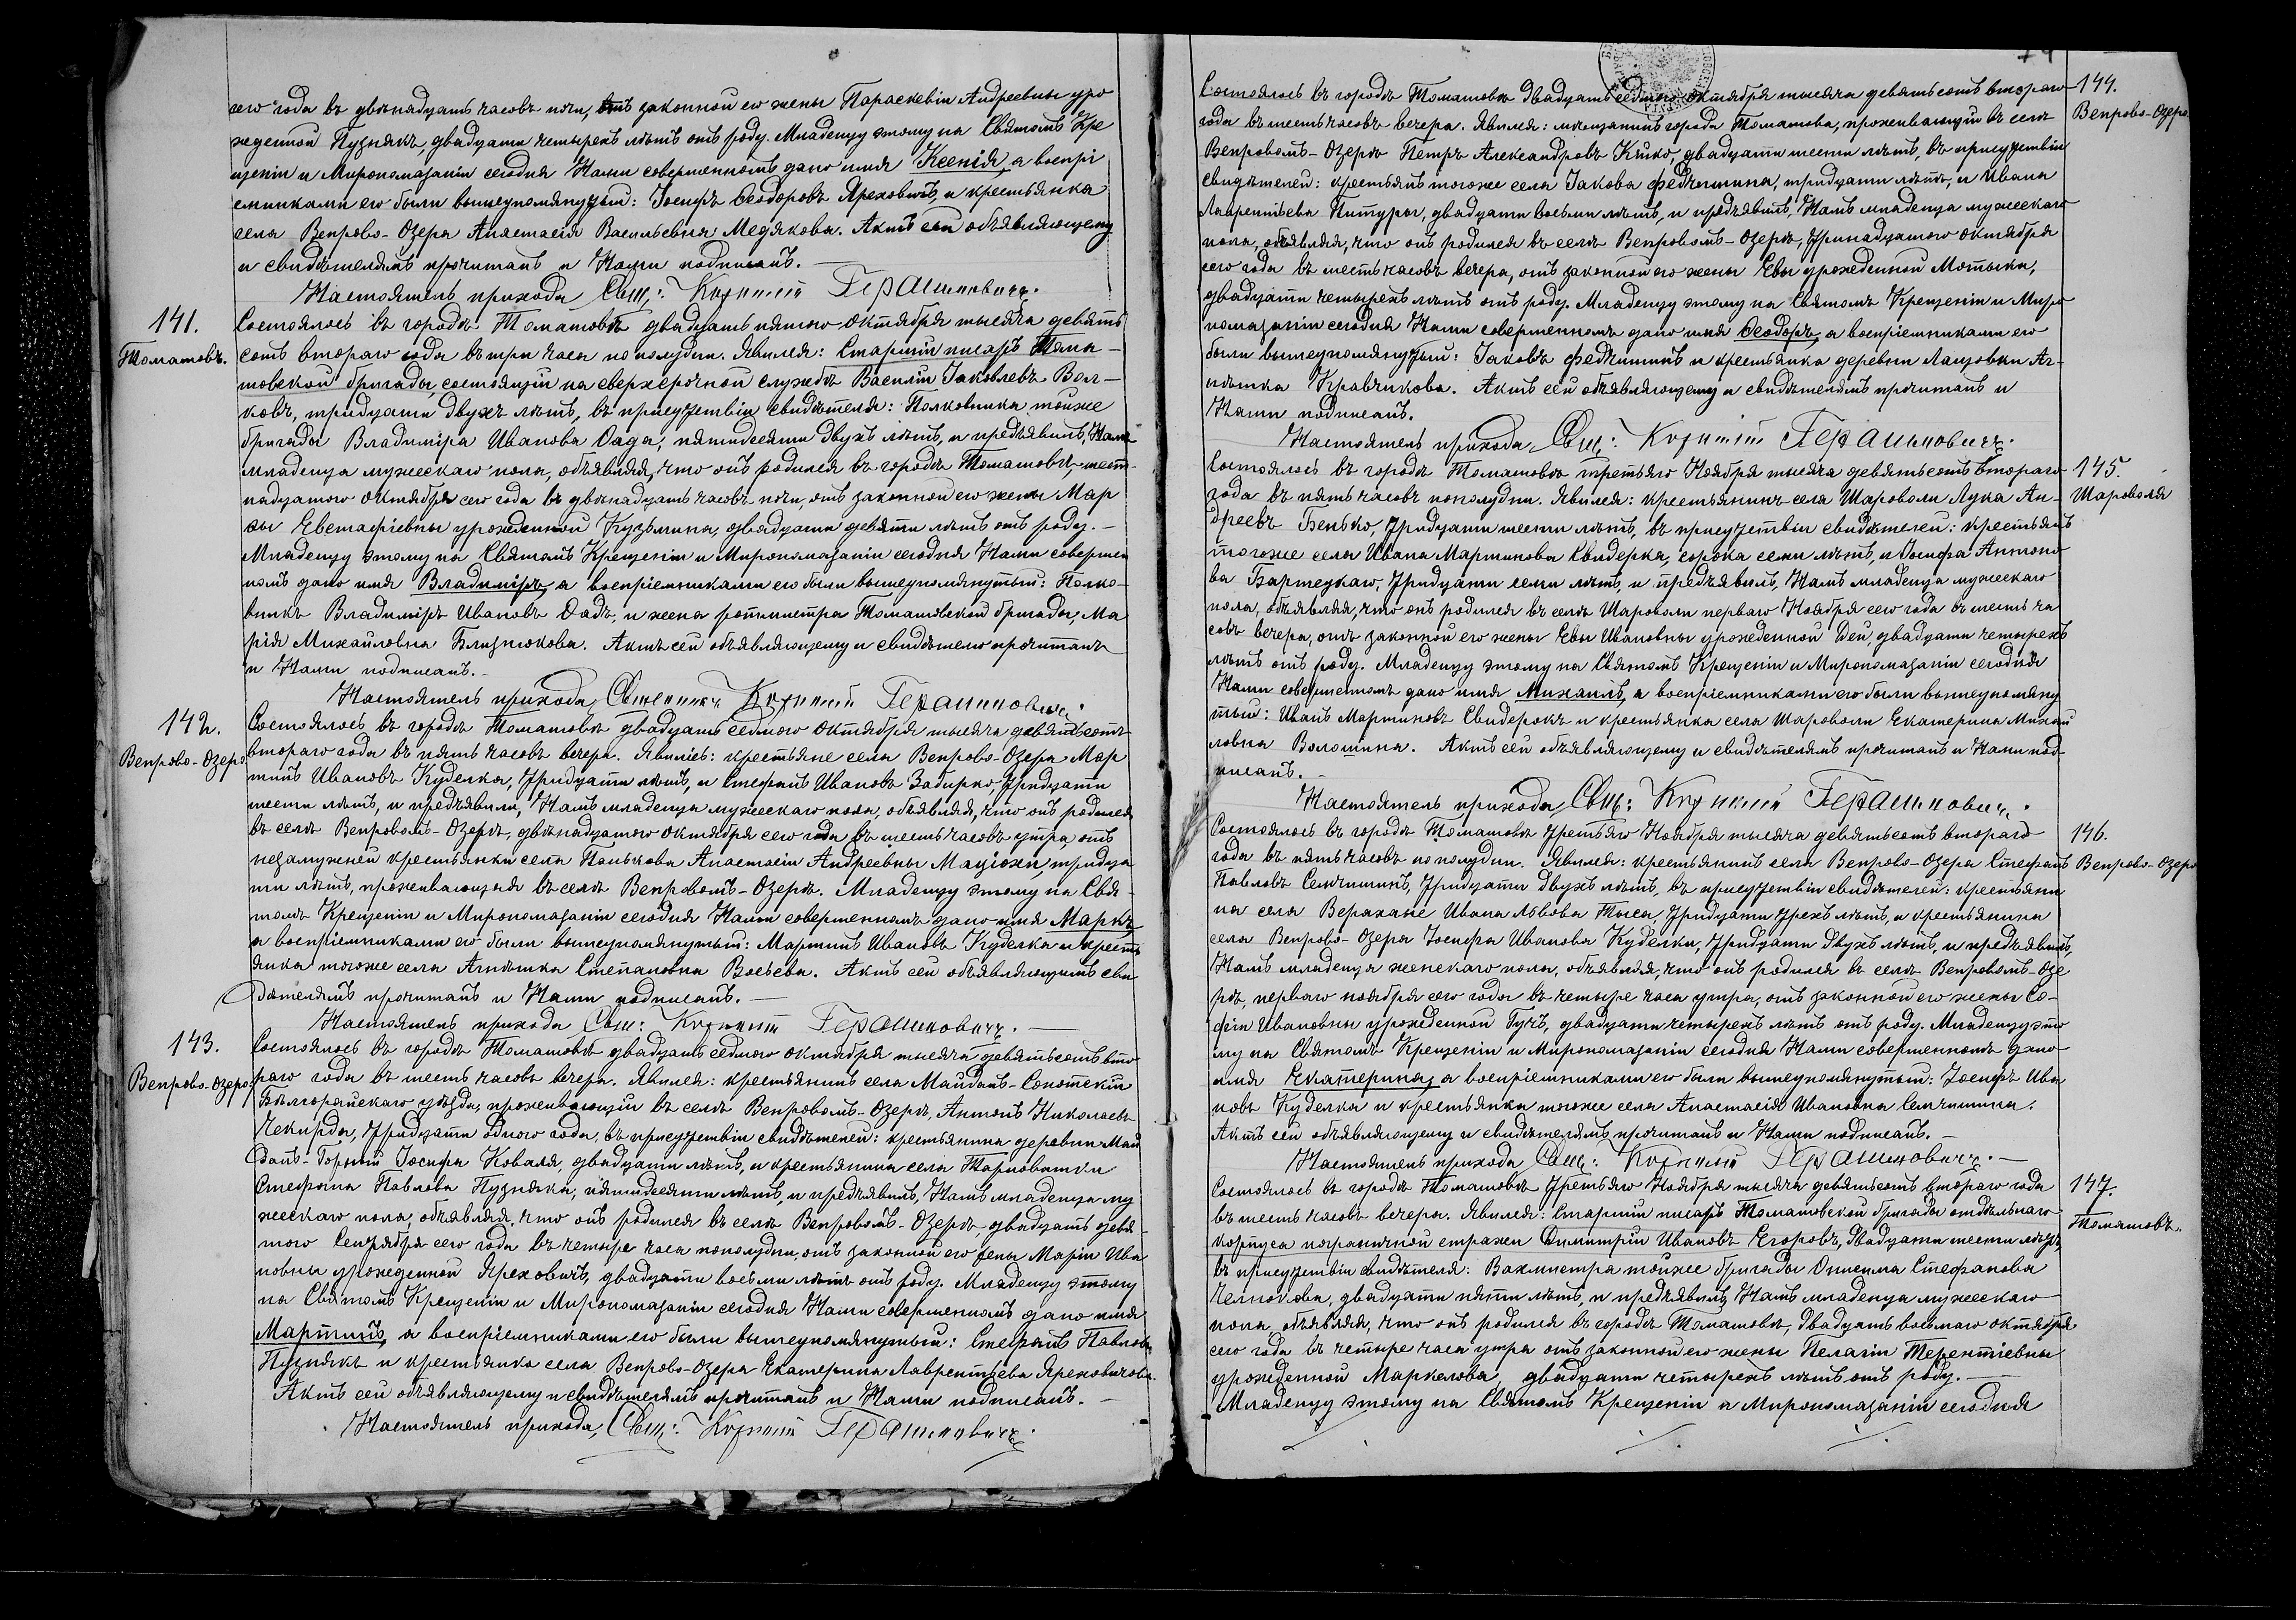 сего года въ двѣнадцать часовъ ночи, отъ законной его жены Параскевіи Андреевны уро
жденной Пузнякъ, двадцати четырехъ лѣтъ отъ роду. Младенцу этому на Святомъ Кре
щеніи и Миропомазаніи сегодня Нами совершенномъ дано имя Ксенія, а воспрі
емниками его были вышеупомянутый: Іосифъ Ѳеодоровъ Яреховичъ, и крестьянка
села Вепрово-Озера Анастасія Васильевна Медякова. Актъ сей объявляющему
и свидѣтелямъ прочитанъ и Нами подписанъ.
Настоятель прихода Свщ: Корнилій Герашиновичъ.
141.
Томашовъ.
Состоялось въ городѣ Томашовѣ двадцать пятого Октября тысяча девять
сотъ второго года въ три часа по полудни. Явился: Старшій писарь Тома-
шовской бригады, состоящій на сверхсрочной службѣ Василій Іаковлевъ Вол-
ковъ, тридцати двухъ лѣтъ, въ присутствіи свидѣтеля: Полковника тойже
бригады Владиміра Иванова Дада, пятидесяти двухъ лѣтъ, и предъявилъ Намъ
младенца мужескаго пола, объявляя, что онъ родился въ городѣ Томашовѣ, шест-
надцатого Октября сего года въ двѣнадцать часовъ ночи, отъ законной его жены Мар
ѳы Евстафіевны урожденной Кузьмина, двадцати девяти лѣтъ отъ роду.
Младенцу этому на Святомъ Крещеніи и Миропомазаніи сегодня Нами совершен
номъ дано имя Владиміръ, а воспріемниками его были вышеупомянутый: Полко-
вникъ Владиміръ Ивановъ Дадъ, и жена ротмистра Томашовской бригады, Ма
рія Михайловна Близнюкова. Актъ сей объявляющему и свидѣтелю прочитанъ
и Нами подписанъ.
Настоятель прихода, Священникъ Корнилій Герашиновичъ.
142.
Вепрово-Озеро.
Состоялось въ городѣ Томашовѣ двадцать седьмого Октября тысяча девятьсотъ
второго года въ пять часовъ вечера. Явились: крестьяне села Вепрово-Озера Мар
тинъ Ивановъ Куделка, тридцати лѣтъ, и Стефанъ Ивановъ Задирко, тридцати
шести лѣтъ, и предъявили, Намъ младенца мужескаго пола, объявляя, что онъ родился
въ селѣ Вепровомъ-Озерѣ, двѣнадцатого Октября сего года въ шесть часовъ утра, отъ
незамужней крестьянки села Панькова Анастасіи Андреевны Мацюхи, тридца
ти лѣтъ, проживающая въ селѣ Вепровомъ-Озерѣ. Младенцу этому на Свя-
томъ Крещеніи и Миропомазаніи сегодня Нами совершенномъ дано имя Маркъ
а воспріемниками его были вышеупомянутый: Мартинъ Ивановъ Куделка и кресть
янка тогоже села Агнѣшка Степановна Восьева. Актъ сей объявляющимъ сви
дѣтелямъ прочитанъ и Нами подписанъ.
Настоятель прихода Свщ: Корнилій Герашиновичъ.
143.
Вепрово-Озеро.
Состоялось въ городѣ Томашовѣ двадцать седьмого Октября тысяча девятьсотъ вто
рого года въ шесть часовъ вечера. Явился: крестьянинъ села Майданъ-Сопотскій
Бѣлгорайскаго уѣзда, проживающій въ селѣ Вепровомъ-Озерѣ, Антонъ Николаевъ
Чекирда, тридцати одного года, въ присутствіи свидѣтелей: крестьянина деревни Май
данъ-Горный Іосифа Коваля, двадцати лѣтъ, и крестьянина села Тарноватки
Стефана Павлова Пузняка, пятидесяти лѣтъ, и предъявилъ, Намъ младенца му
жескаго пола, объявляя, что онъ родился въ селѣ Вепровомъ-Озерѣ, двадцать девя-
того Сентября сего года въ четыре часа пополудни, отъ законной его жены Маріи Ива
новны урожденной Яреховичъ, двадцати восьми лѣтъ отъ роду. Младенцу этому
на Святомъ Крещеніи и Миропомазаніи сегодня Нами совершенномъ дано имя
Мартинъ, а воспріемниками его были вышеупомянутый: Стефанъ Павловъ
Пузнякъ и крестьянка села Вепрово-Озера Екатерина Лаврентьева Яреховичова.
Актъ сей объявляющему и свидѣтелямъ прочитанъ и Нами подписанъ.
Настоятель прихода, Свщ: Корнилій Герашиновичъ.
144.
Вепрово-Озеро.
Состоялось въ городѣ Томашовѣ двадцать седьмого Октября тысяча девятьсотъ второго
года въ шесть часовъ вечера. Явился: мѣщанинъ города Томашова, проживающій въ селѣ
Вепровомъ-Озерѣ Петръ Александровъ Кицко, двадцати шести лѣтъ, въ присутствіи
свидѣтелей: крестьянъ тогоже села Іакова Федчишина, тридцати лѣтъ, и Ивана
Лаврентіева Питуры, двадцати восьми лѣтъ, и предъявилъ, Намъ младенца мужескаго
пола, объявляя, что онъ родился въ селѣ Вепровомъ-Озерѣ, тринадцатого Октября
сего года въ шесть часовъ вечера, отъ законной его жены Евы урожденной Мотыка,
двадцати четырехъ лѣтъ отъ роду. Младенцу этому на Святомъ Крещеніи и Миро
помазаніи сегодня Нами совершенномъ дано имя Ѳеодоръ, а воспріемниками его
были вышеупомянутый: Іаковъ Федчишинъ и крестьянка деревни Лащовки Аг-
нѣшка Кравчикова. Актъ сей объявляющему и свидѣтелямъ прочитанъ и
Нами подписанъ.
Настоятель прихода, Свщ: Корнилій Герашиновичъ.
145.
Шароволя
Состоялось въ городѣ Томашовѣ третьяго Ноября тысяча девятьсотъ второго
года въ пять часовъ пополудни. Явился: крестьянинъ села Шароволи Лука Ан-
дреевъ Бенько, тридцати шести лѣтъ, въ присутствіи свидѣтелей: крестьянъ
тогоже села Ивана Мартинова Свидерка, сорока семи лѣтъ, и Іосифа Антоно
ва Бартецкаго, тридцати семи лѣтъ, и предъявилъ, Намъ младенца мужескаго
пола, объявляя, что онъ родился въ селѣ Шароволи перваго Ноября сего года въ шесть ча
совъ вечера, отъ законной его жены Евы Ивановны урожденной Дей, двадцати четырехъ
лѣтъ отъ роду. Младенцу этому на Святомъ Крещеніи и Миропомазаніи сегодня
Нами совершенномъ дано имя Михаилъ, а воспріемниками его были вышеупомяну
тый: Иванъ Мартиновъ Свидерокъ и крестьянка села Шароволи Екатерина Михай
ловна Волошина. Актъ сей объявляющему и свидѣтелямъ прочитанъ и Нами под
писанъ.
Настоятель прихода, Свщ: Корнилій Герашиновичъ.
146.
Вепрово-Озеро
Состоялось въ городѣ Томашовѣ третьяго Ноября тысяча девятьсотъ второго
года въ пять часовъ пополудни. Явился: крестьянинъ села Вепрово-Озера Стефанъ
Павловъ Семчишинъ, тридцати двухъ лѣтъ, въ присутствіи свидѣтелей: крестьяни
на села Верахане Ивана Львова Тыса, тридцати трехъ лѣтъ, и крестьянина
села Вепрово-Озера Іосифа Иванова Куделки, тридцати двухъ лѣтъ, и предъявилъ,
Намъ младенца женскаго пола, объявляя, что онъ родился въ селѣ Вепровомъ-Озе
рѣ, перваго ноября сего года въ четыре часа утра, отъ законной его жены Со-
фіи Ивановны урожденной Гучъ, двадцати четырехъ лѣтъ отъ роду. Младенцу это
му на Святомъ Крещеніи и Миропомазаніи сегодня Нами совершенномъ дано
имя Екатерина, а воспріемниками его были вышеупомянутый: Іосифъ Ива
новъ Куделка и крестьянка тогоже села Анастасія Ивановна Семчишина.
Актъ сей объявляющему и свидѣтелямъ прочитанъ и Нами подписанъ.
Настоятель прихода, Свщ: Корнилій Герашиновичъ.
147.
Томашовъ.
Состоялось въ городѣ Томашовѣ третьяго Ноября тысяча девятьсотъ второго года
въ шесть часовъ вечера. Явился: Старшій писарь Томашовской бригады отдѣльнаго
корпуса пограничной стражи Димитрій Ивановъ Егоровъ, двадцати шести лѣтъ,
въ присутствіи свидѣтеля: Вахмистра тойже бригады Онисима Стефанова
Челнокова, двадцати пяти лѣтъ, и предъявилъ Намъ младенца мужескаго
пола, объявляя, что онъ родился въ городѣ Томашовѣ, двадцать восьмаго октября
сего года въ четыре часа утра отъ законной его жены Пелагіи Терентіевны
урожденной Маркелова, двадцати четырехъ лѣтъ отъ роду.
Младенцу этому на Святомъ Крещеніи и Миропомазаніи сегодня